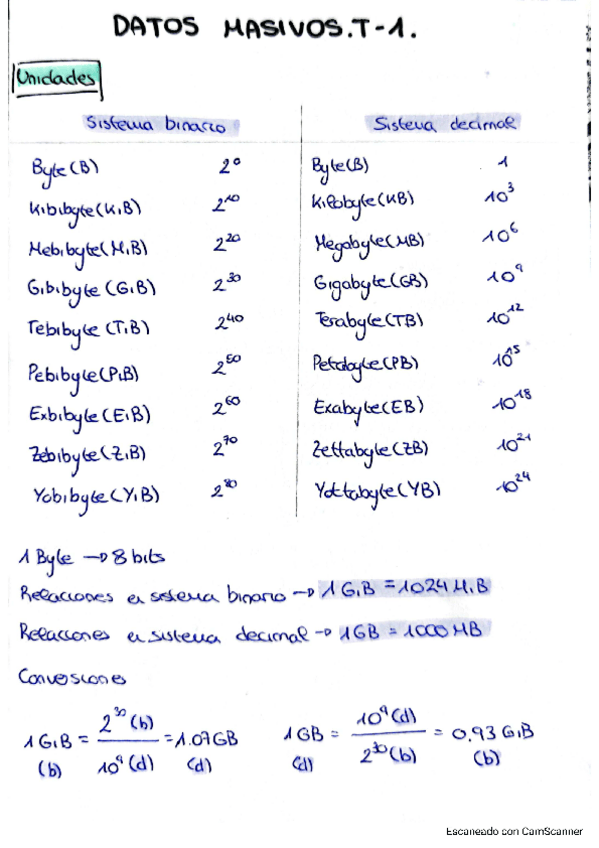 DATOS MASIVOS.T-1.
Unidades
Sistema binario Sistema decimal
Byte(B) 2⁰ Byte(B) 1
Kibibyte(KiB) 2¹⁰ Kilobyte(KB) 10³
Mebibyte(MiB) 2²⁰ Megabyte(MB) 10⁶
Gibibyte(GiB) 2³⁰ Gigabyte(GB) 10⁹
Tebibyte(TiB) 2⁴⁰ Terabyte(TB) 10¹²
Pebibyte(PiB) 2⁵⁰ Petabyte(PB) 10¹⁵
Exbibyte(EiB) 2⁶⁰ Exabyte(EB) 10¹⁸
Zebibyte(ZiB) 2⁷⁰ Zettabyte(ZB) 10²¹
Yobibyte(YiB) 2⁸⁰ Yottabyte(YB) 10²⁴
1 Byte → 8 bits
Relaciones en sistema binario → 1GiB = 1024 MiB
Relaciones en sistema decimal → 1GB = 1000 MB
Conversiones
1GiB = 2³⁰(b) / 10⁹(d) = 1.07GB 1GB = 10⁹(d) / 2³⁰(b) = 0.93GiB
(b) (d) (d) (b)
Escaneado con CamScanner